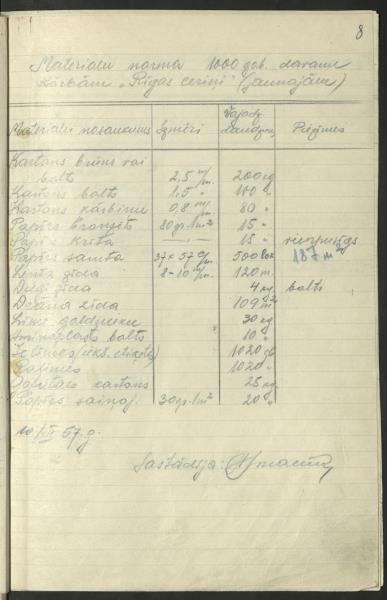 8
Materialu norma 1000 gab. daramu
kārbām "Rīgas ceriņi" (jaunajām)
Materialu nosaukums Izmēri Vajadz. daudzums Piezīmes
Kartons brūns vai
balts 2,5 m/m. 200 kg
Kartons balts 1,5 " 100 "
Kartons kārbiņu 0,8 m/m. 80 "
Papīrs 80 gr. 1m² 15 "
Papīrs krīta — " — 15 " vienpusīgs
Papīrs samta 37 x 57 c/m. 500 lok. 187 m²
Lenta zīda 8-10 m/m. 120 m.
Diegi zīda 4 kg balts
Drāna zīda 109 m²
30 kg
Aminoplasts balts 10 "
1020 gb.
1020 "
kartons 25 kg
Papīrs saiņoj. 30 gr. 1m² 20 "
10/III 57. g.
Sastādīja: